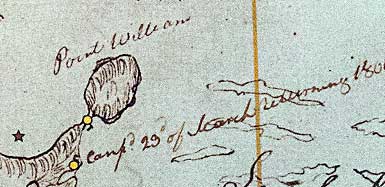 Point William
Camp'd 23d of March returning 180